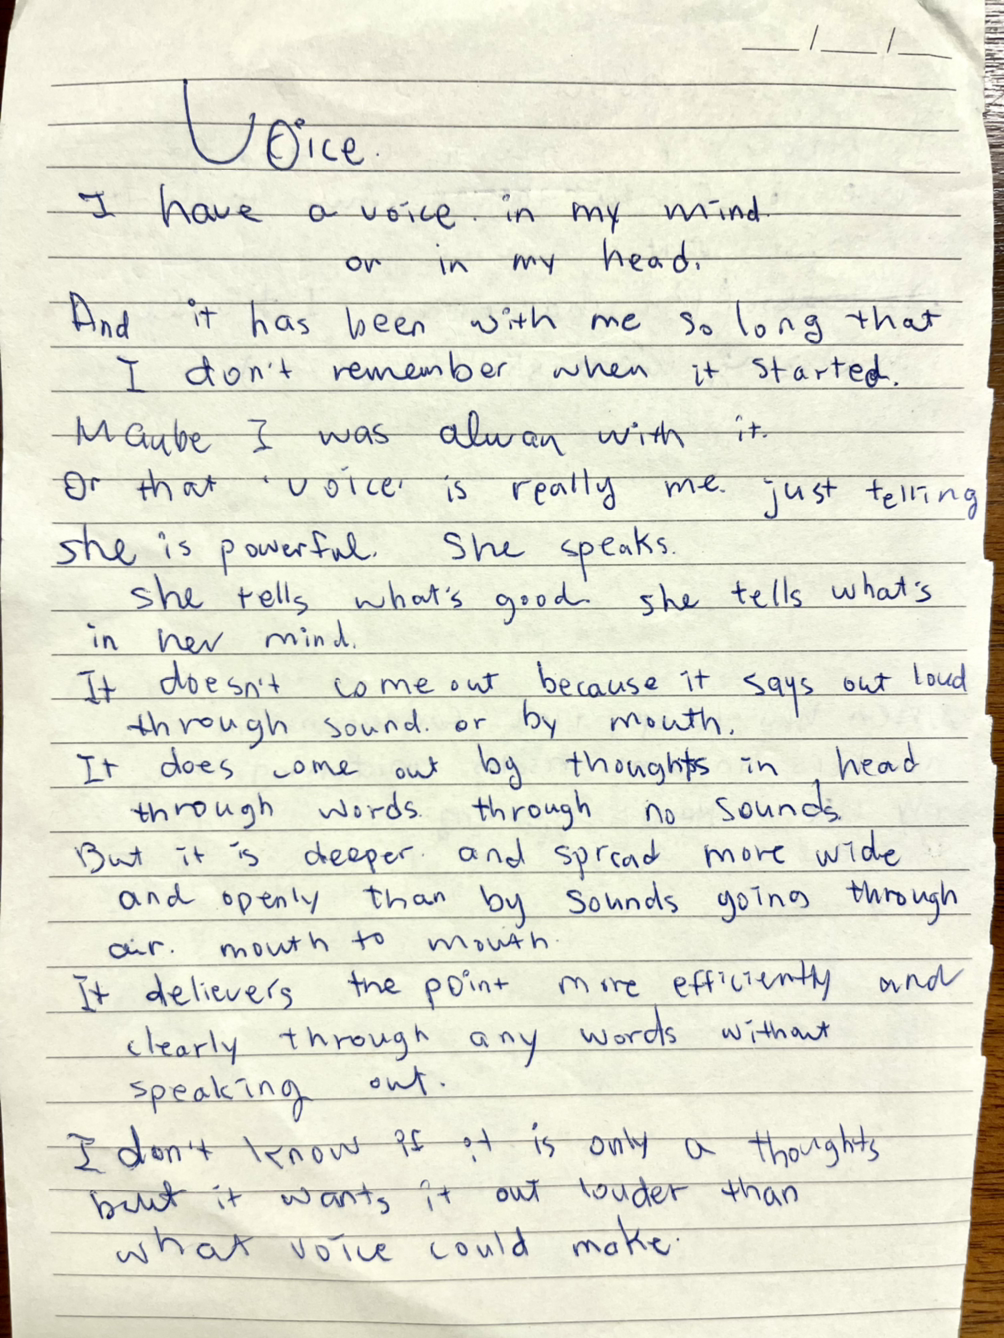 Voice.
I have a voice. in my mind.
or in my head.
And it has been with me so long that
I don't remember when it started.
Maybe I was alway with it.
Or that 'voice' is really me. just telling
she is powerful. She speaks.
she tells what's good. she tells what's
in her mind.
It doesn't come out because it says out loud
through sound. or by mouth.
It does come out by thoughts in head
through words. through no sounds.
But it is deeper. and spread more wide
and openly than by sounds going through
air. mouth to mouth.
It delievers the point more efficiently and
clearly through any words without
speaking out.
I don't know if it is only a thoughts
but it wants it out louder than
what voice could make.